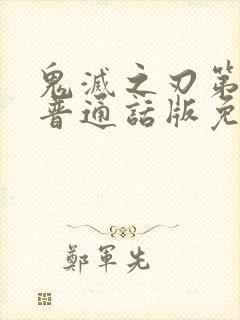 鬼滅之刃第
普通話版免
鄭軍先